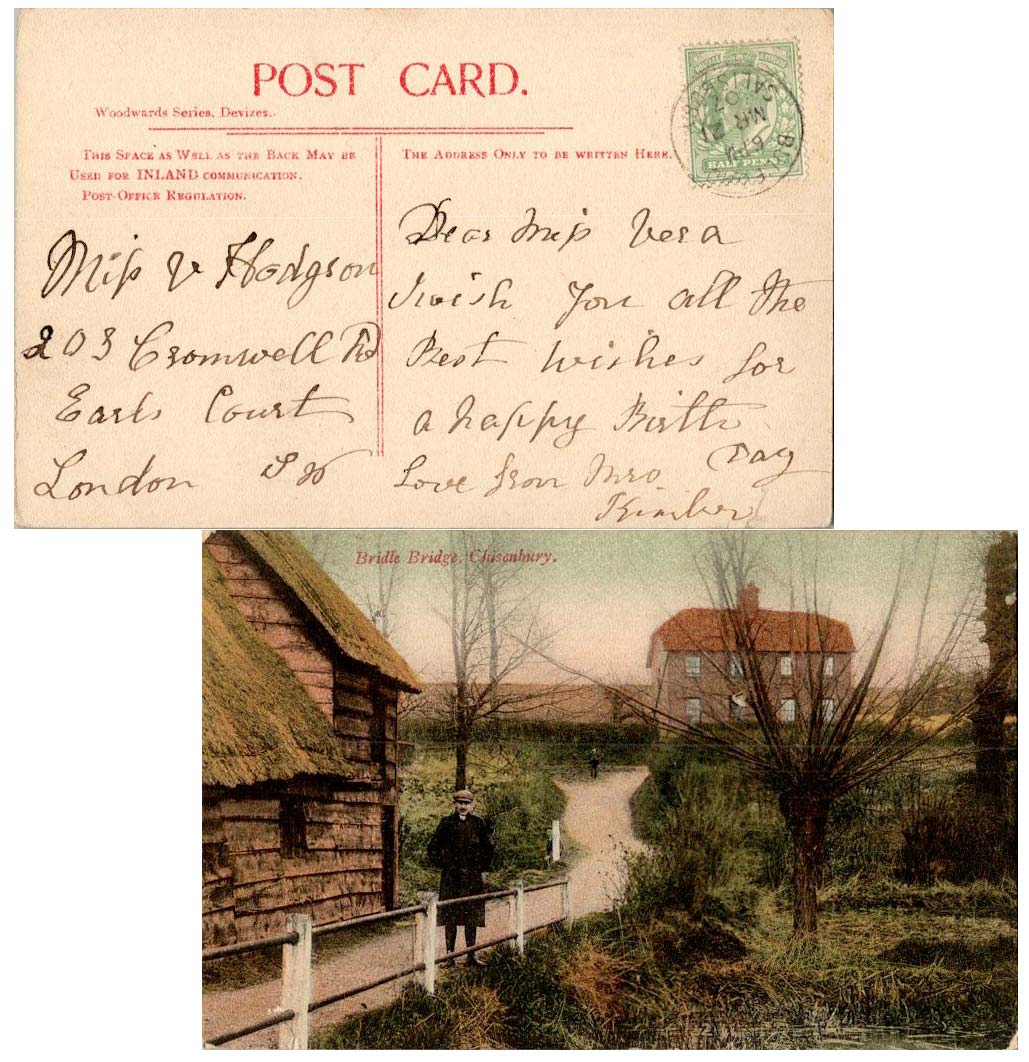 POST CARD.
Woodwards Series, Devizes.
This Space as Well as the Back May be
Used for INLAND communication.
Post-Office Regulation.
The Address Only to be written Here.
HALF PENNY
MR 21
07
Miss V Hodgson
203 Cromwell Rd
Earls Court
London S W
Dear Miss Vera
I wish You all the
Best wishes for
a happy Birth
Day
Love from Mrs
Kimber
Bridle Bridge, Chisenbury.